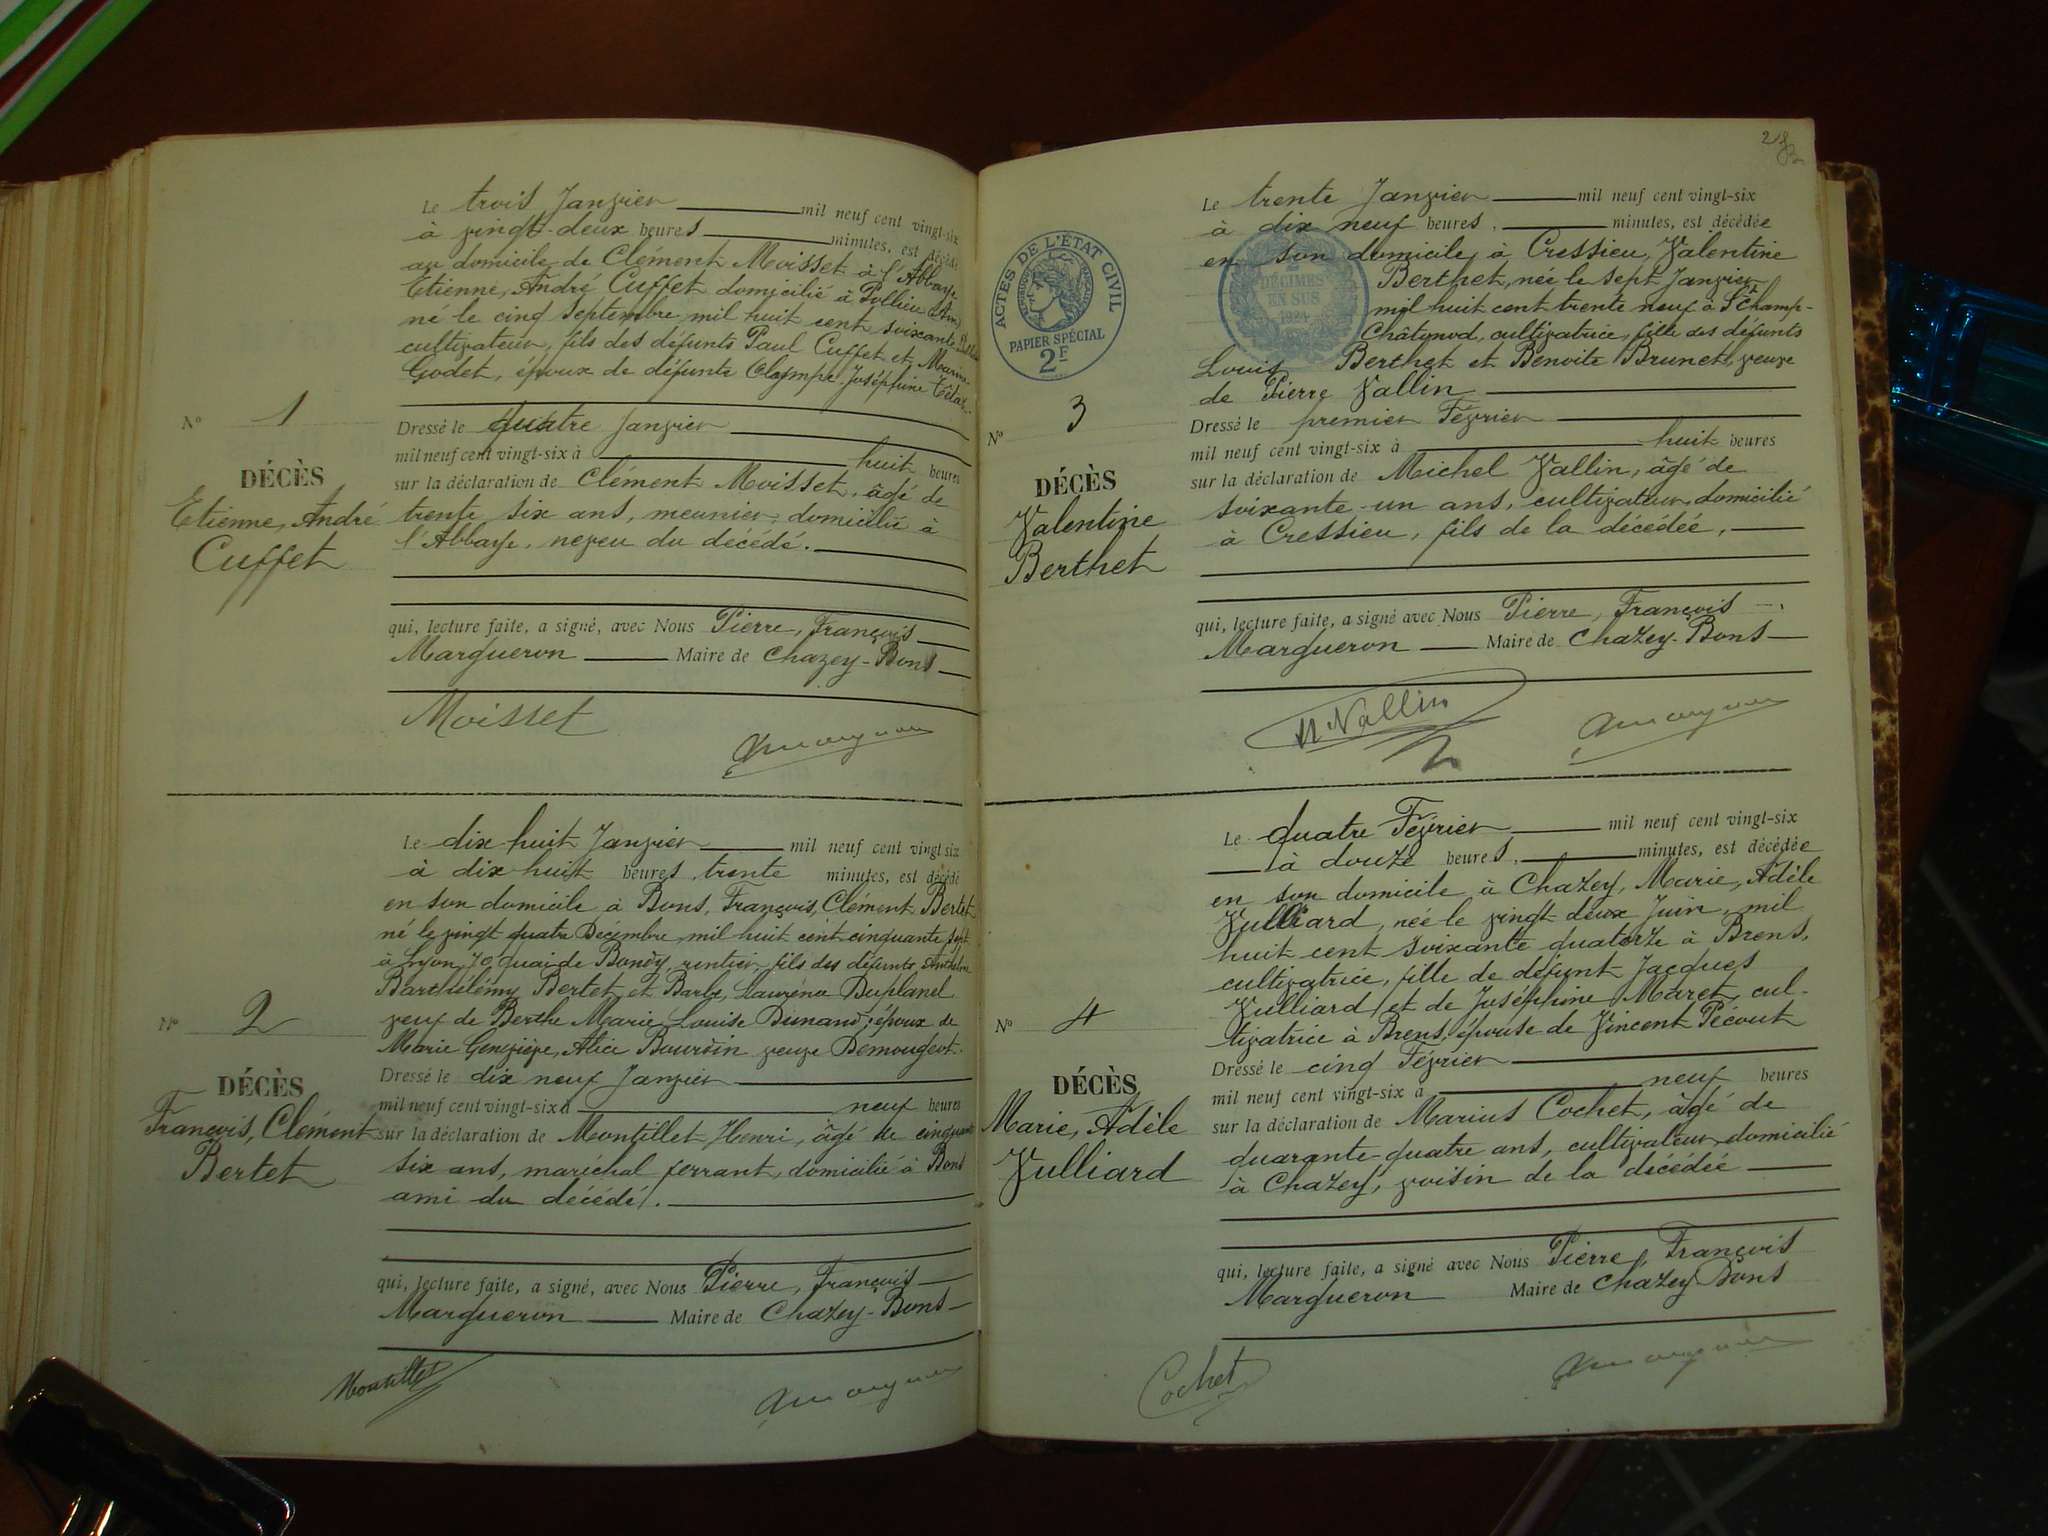 Le trois Janvier mil neuf cent vingt-six
à vingt-deux heures minutes, est décédé
au domicile de Clément Moisset à l'Abbaye
Etienne, André Cuffet domicilié à Pollieu (Ain)
né le cinq Septembre mil huit cent soixante
cultivateur, fils des défunts Paul Cuffet et
Godet, époux de défunte Olympe Joséphine
Nº 1
Dressé le quatre Janvier
mil neuf cent vingt-six à huit heures
DÉCÈS
sur la déclaration de Clément Moisset, âgé de
Etienne, André
trente six ans, meunier, domicilié à
Cuffet
l'Abbaye, neveu du décédé.
qui, lecture faite, a signé, avec Nous Pierre, François
Margueron Maire de Chazey-Bons
Moisset
Le dix huit Janvier mil neuf cent vingt six
à dix huit heures trente minutes, est décédé
en son domicile à Bons, François, Clément Bertet
né le vingt quatre Décembre mil huit cent cinquante sept
à Lyon, 70 quai de Bondy, rentier, fils des défunts Anthelme
Barthélémy Bertet et Barbe, Laurence Duplanel
Nº 2
veuf de Berthe Marie Louise Dunand, époux de
Marie Geneviève, Alice Bourdin veuve Demougeot.
DÉCÈS
Dressé le dix neuf Janvier
François, Clément
mil neuf cent vingt-six à neuf heures
Bertet
sur la déclaration de Montillet Henri, âgé de cinquante
six ans, maréchal ferrant, domicilié à Bons
ami du décédé.
qui, lecture faite, a signé, avec Nous Pierre, François
Margueron Maire de Chazey-Bons
Montillet
218
ACTES DE L'ÉTAT CIVIL
PAPIER SPECIAL
2F
2
DÉCIMES
EN SUS
1924
Le trente Janvier mil neuf cent vingt-six
à dix neuf heures, minutes, est décédée
en son domicile à Cressieu, Valentine
Berthet, née le sept Janvier
mil huit cent trente neuf à St Champ-
Châtonod, cultivatrice, fille des défunts
Louis Berthet et Benoite Brunet, veuve
de Pierre Vallin
Nº 3
Dressé le premier Février
mil neuf cent vingt-six à huit heures
DÉCÈS
sur la déclaration de Michel Vallin, âgé de
Valentine
soixante-un ans, cultivateur, domicilié
Berthet
à Cressieu, fils de la décédée,
qui, lecture faite, a signé avec Nous Pierre, François
Margueron Maire de Chazey-Bons
M Vallin
Le quatre Février mil neuf cent vingt-six
à douze heures, minutes, est décédée
en son domicile à Chazey, Marie, Adèle
Vulliard, née le vingt deux Juin, mil
huit cent soixante quatorze à Brens,
cultivatrice, fille de défunt Jacques
Vulliard et de Joséphine Maret, cul-
Nº 4
tivatrice à Brens, épouse de Vincent Pécout
Dressé le cinq Février
DÉCÈS
mil neuf cent vingt-six à neuf heures
Marie, Adèle
sur la déclaration de Marius Cochet, âgé de
Vulliard
quarante-quatre ans, cultivateur, domicilié
à Chazey, voisin de la décédée
qui, lecture faite, a signé avec Nous Pierre, François
Margueron Maire de Chazey Bons
Cochet